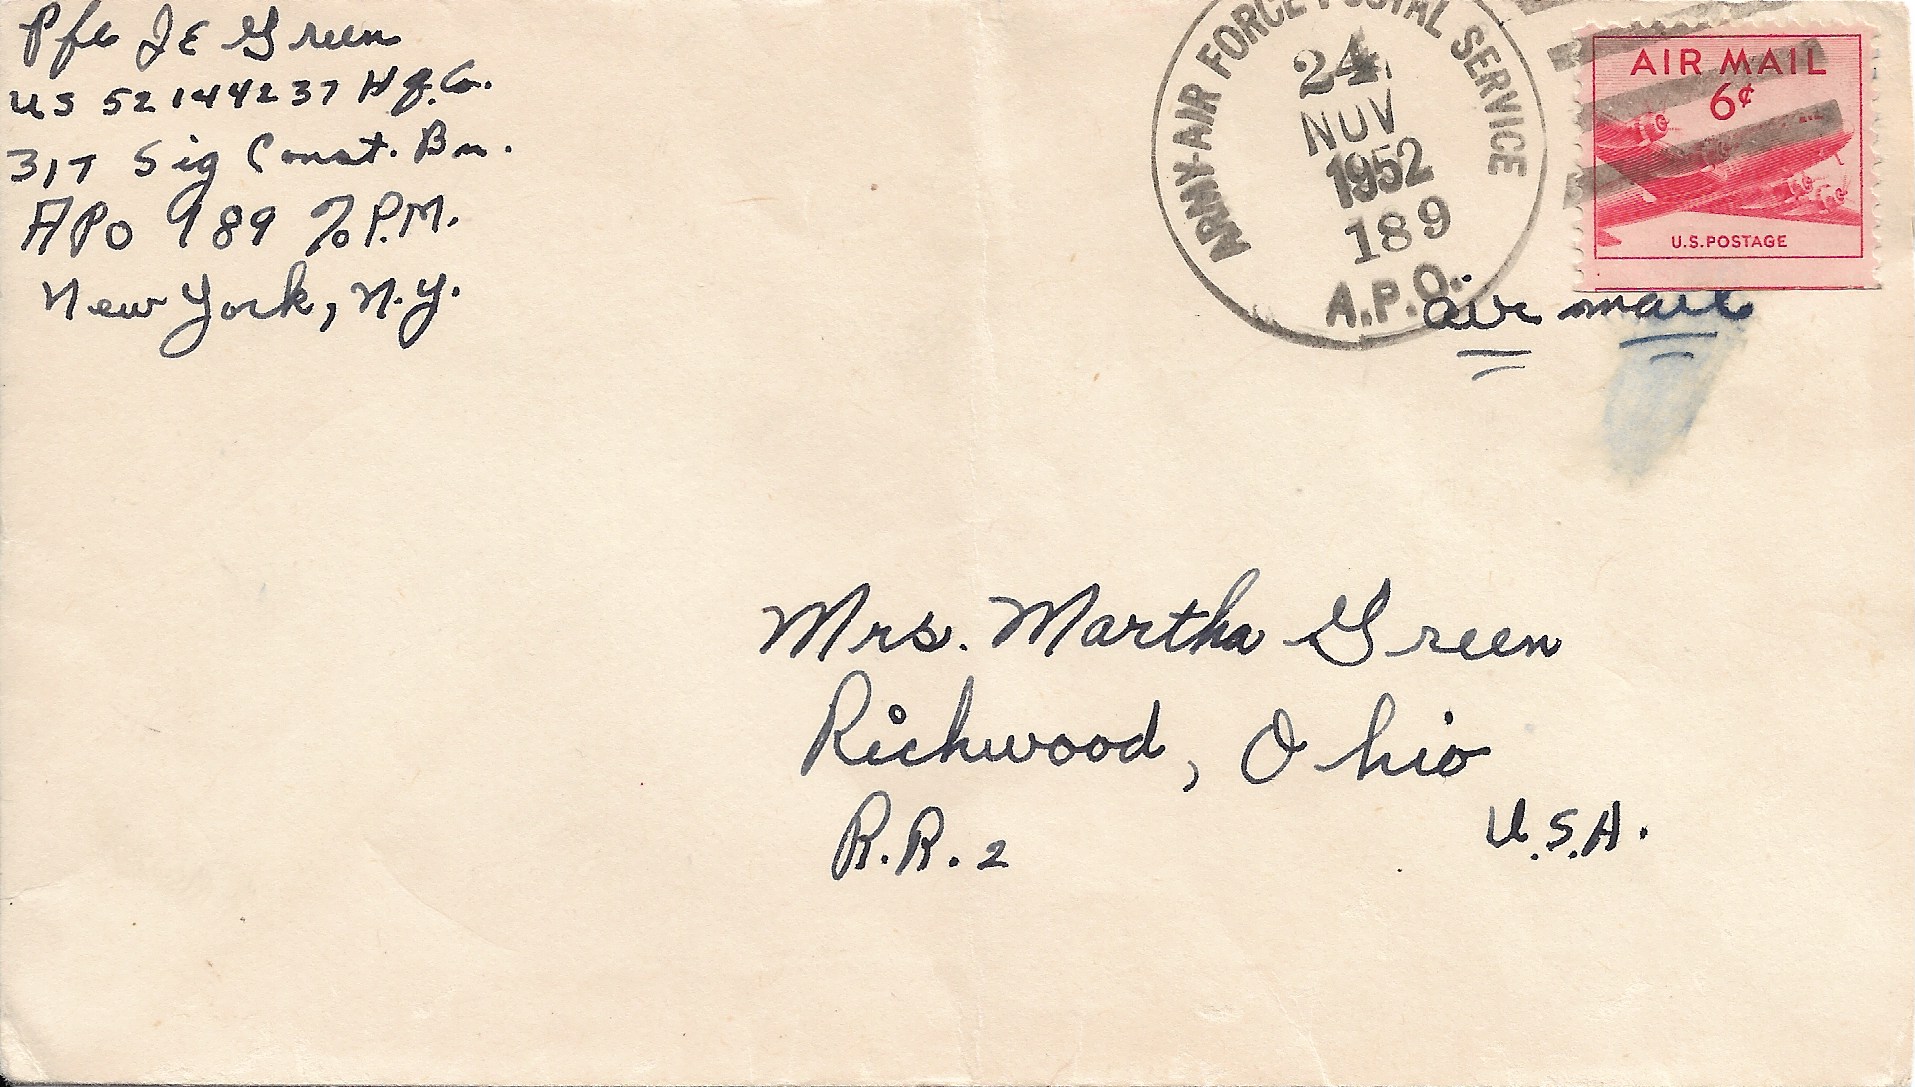 Pfc J E Green
US 52144237 Hq. Co.
317 Sig Const. Bn.
APO 189 % P.M.
New York, N.Y.
ARMY-AIR FORCE POSTAL SERVICE
24
NOV
1952
189
A.P.O.
AIR MAIL
6¢
U.S. POSTAGE
air mail
Mrs. Martha Green
Richwood, Ohio
R.R. 2
U.S.A.